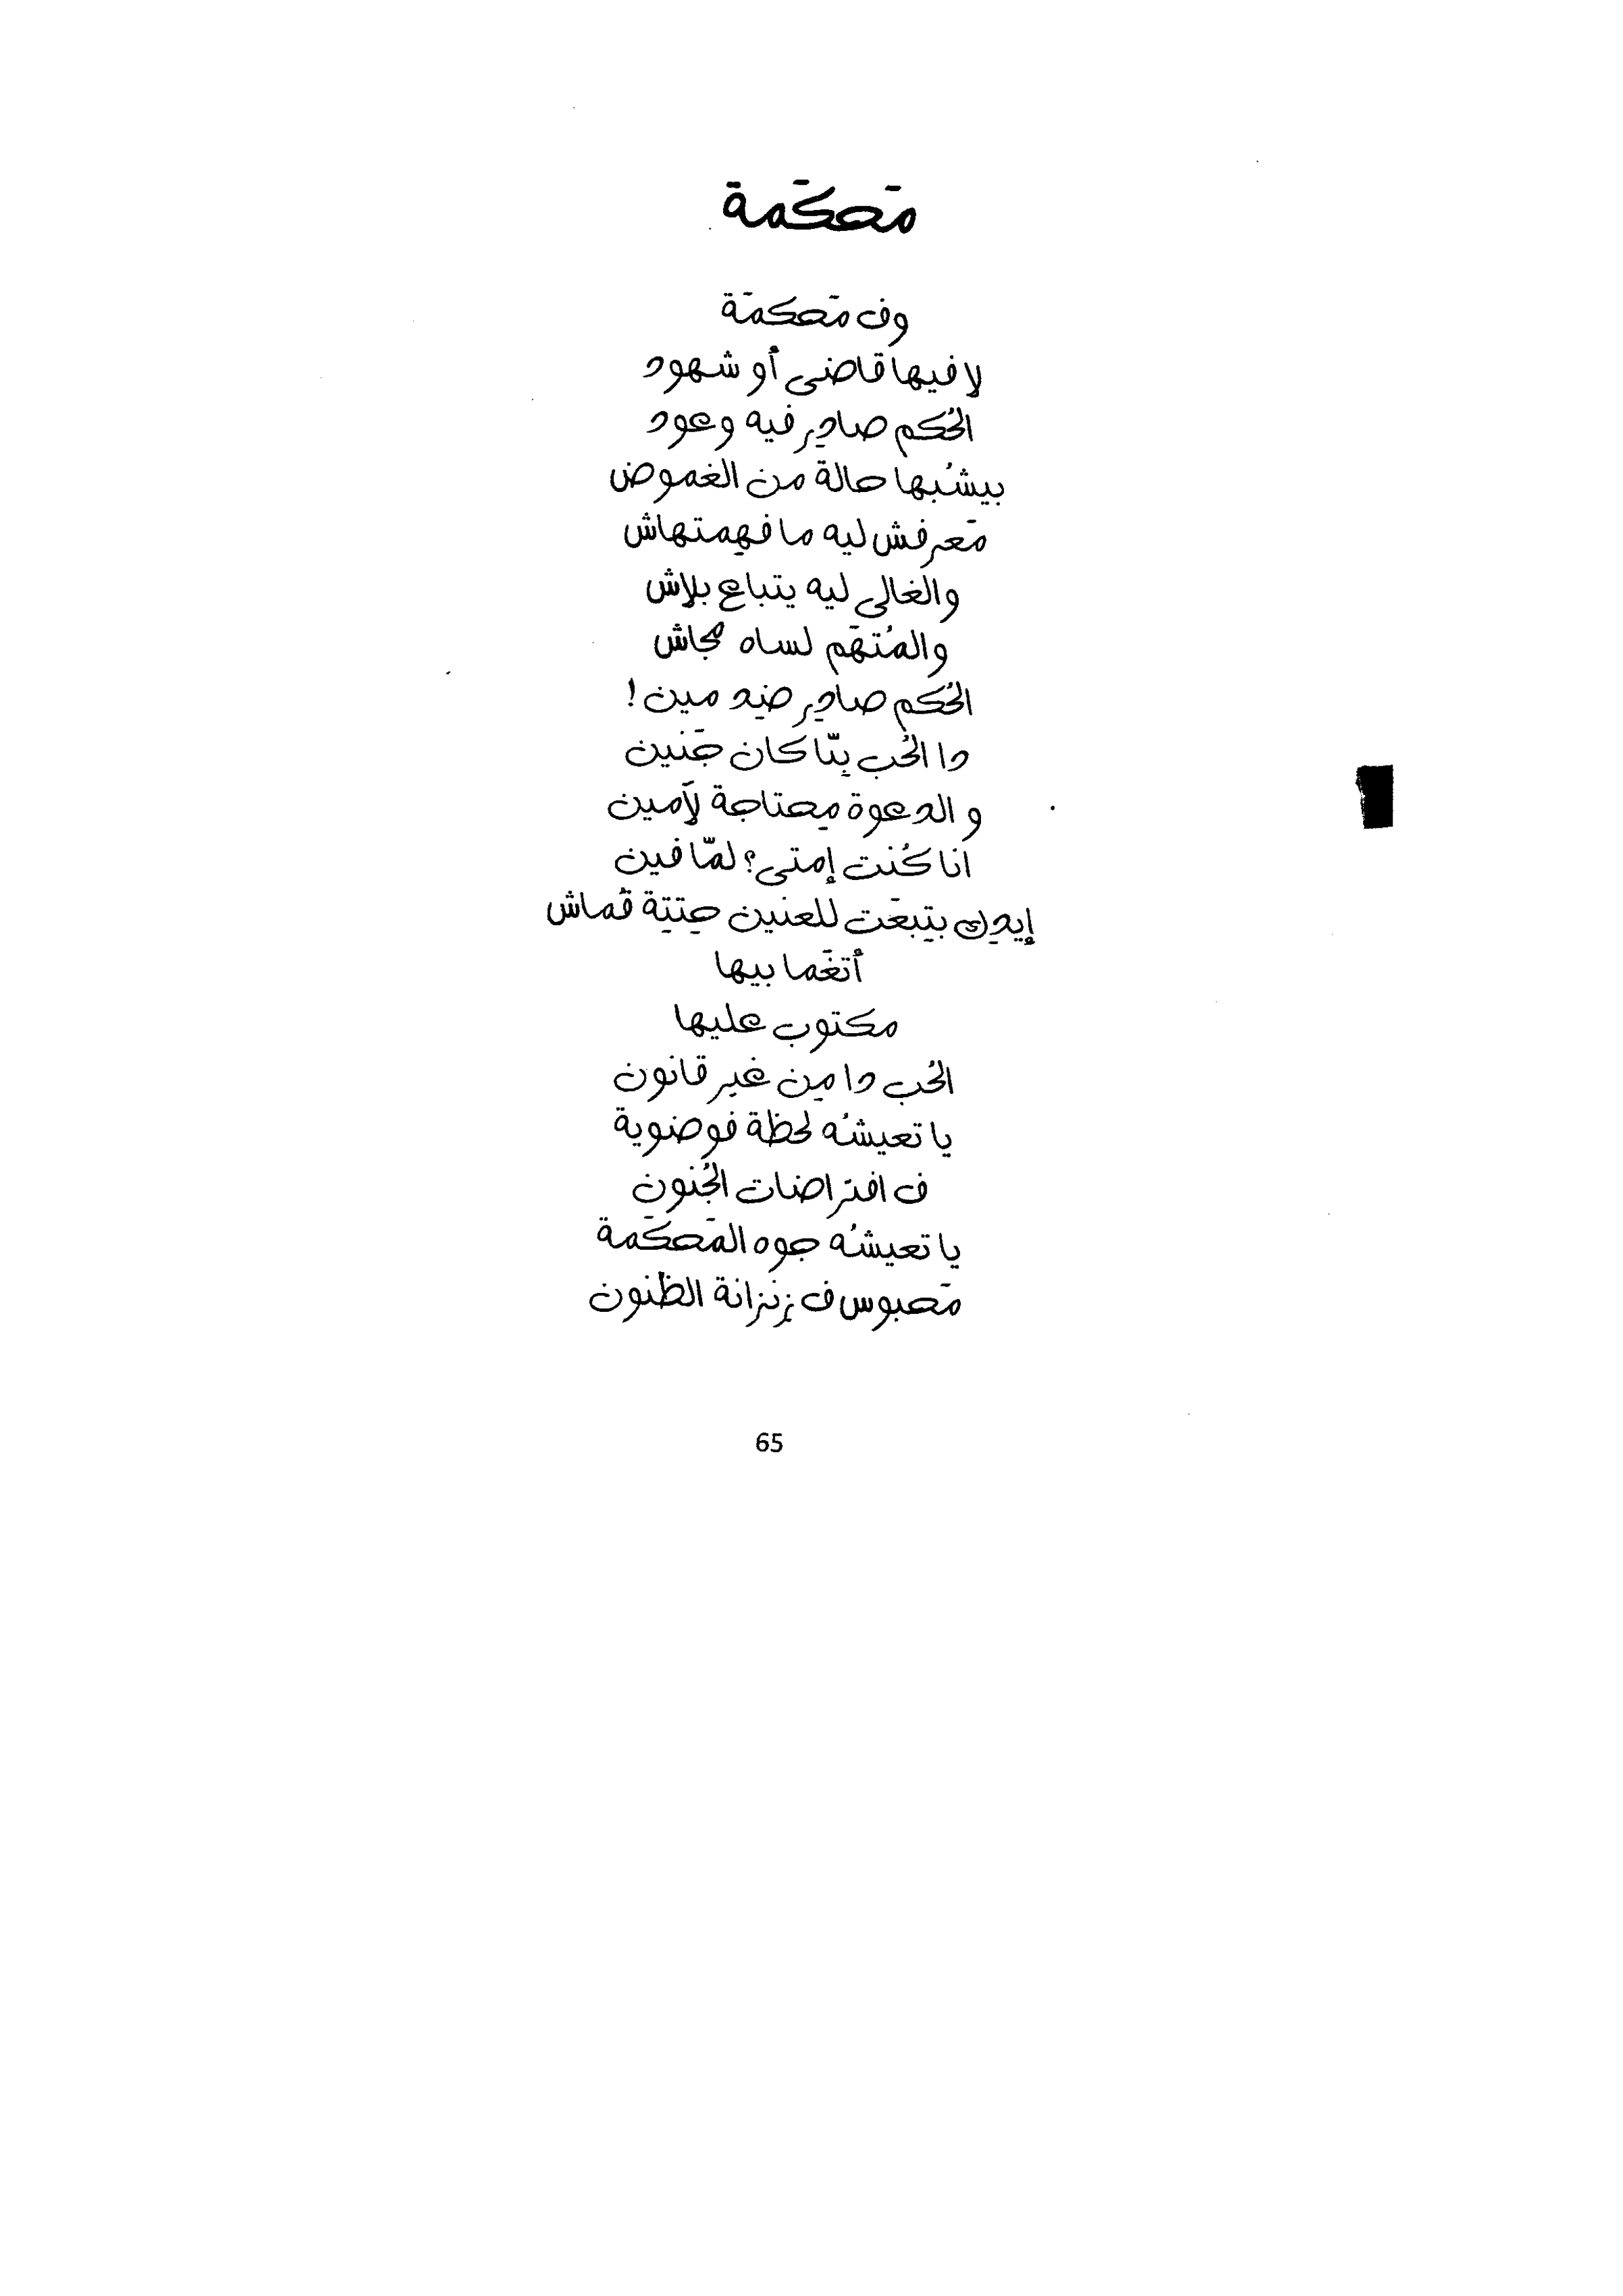 مَحكَمة
وف مَحكمَة
لا فيها قاضى أو شهود
الحُكم صادِر فيه وعود
بيشُبها حالة من الغموض
مَعرفش ليه ما فهِمتهاش
والغالى ليه يتباع بلاش
والمُتهَم لساه مجاش
الحُكم صادِر ضِد مين!
دا الحُب بِنّا كان جَنين
و الدعوة مِحتاجة لآمين
انا كُنت إمتى؟ لمّا فين
إيدِك بتِبعَت للعنين حِتتِة قُماش
أتغَما بيها
مكتوب عليها
الحُب دا مِن غير قانون
يا تعيشُه لحظة فوضوية
ف افتراضات الجُنون
يا تعيشُه جوه المَحكَمة
مَحبوس ف زِنزانة الظنون
65